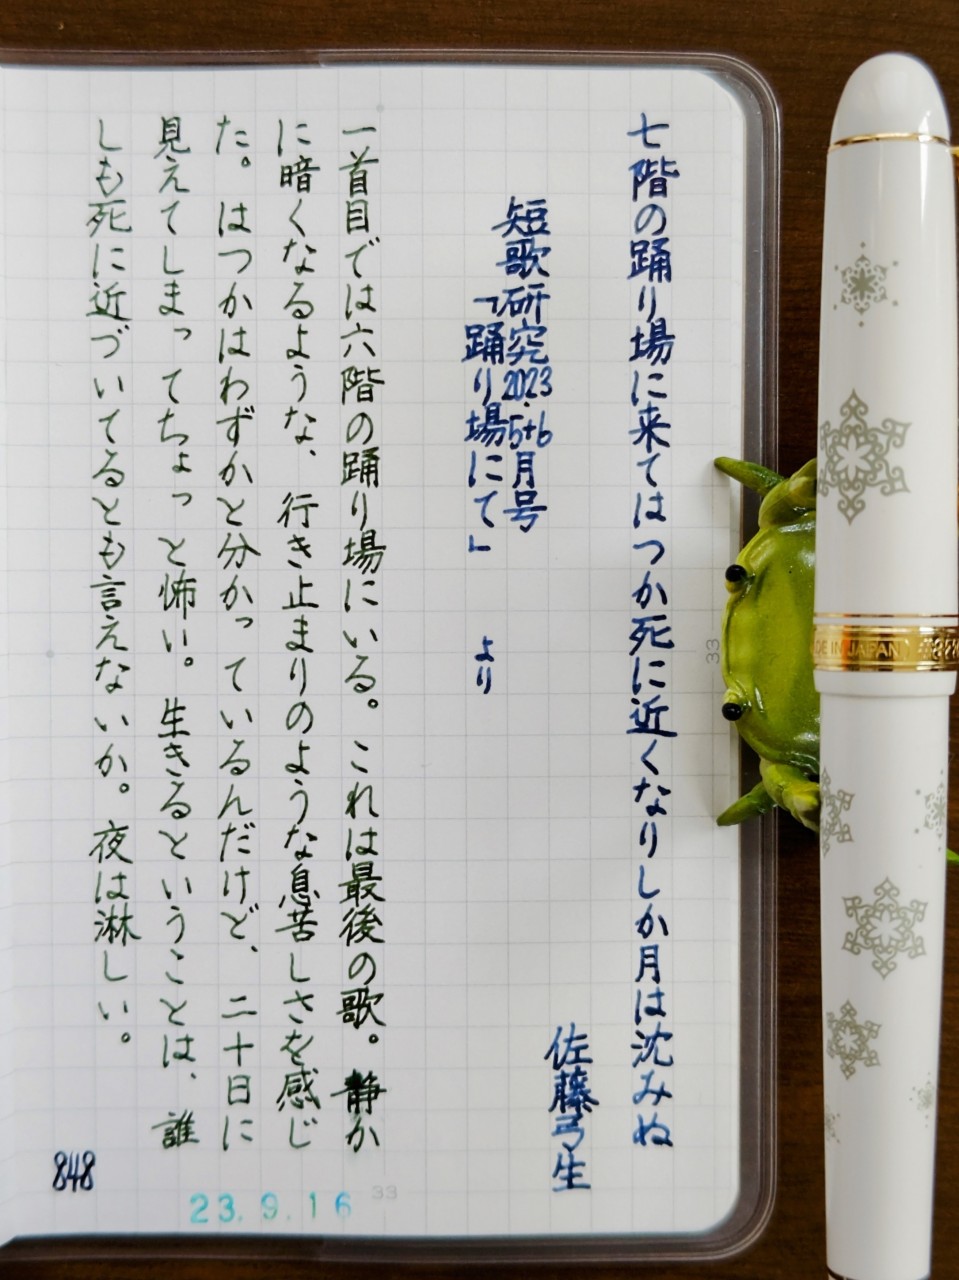 七階の踊り場に来てはつか死に近くなりしか月は沈みぬ
佐藤弓生
短歌研究2023.5+6月号
「踊り場にて」 より
一首目では六階の踊り場にいる。これは最後の歌。静か
に暗くなるような、行き止まりのような息苦しさを感じ
た。はつかはわずかと分かっているんだけど、二十日に
見えてしまってちょっと怖い。生きるということは、誰
しも死に近づいてるとも言えないか。夜は淋しい。
848
23.9.16
33
33
DE IN JAPAN